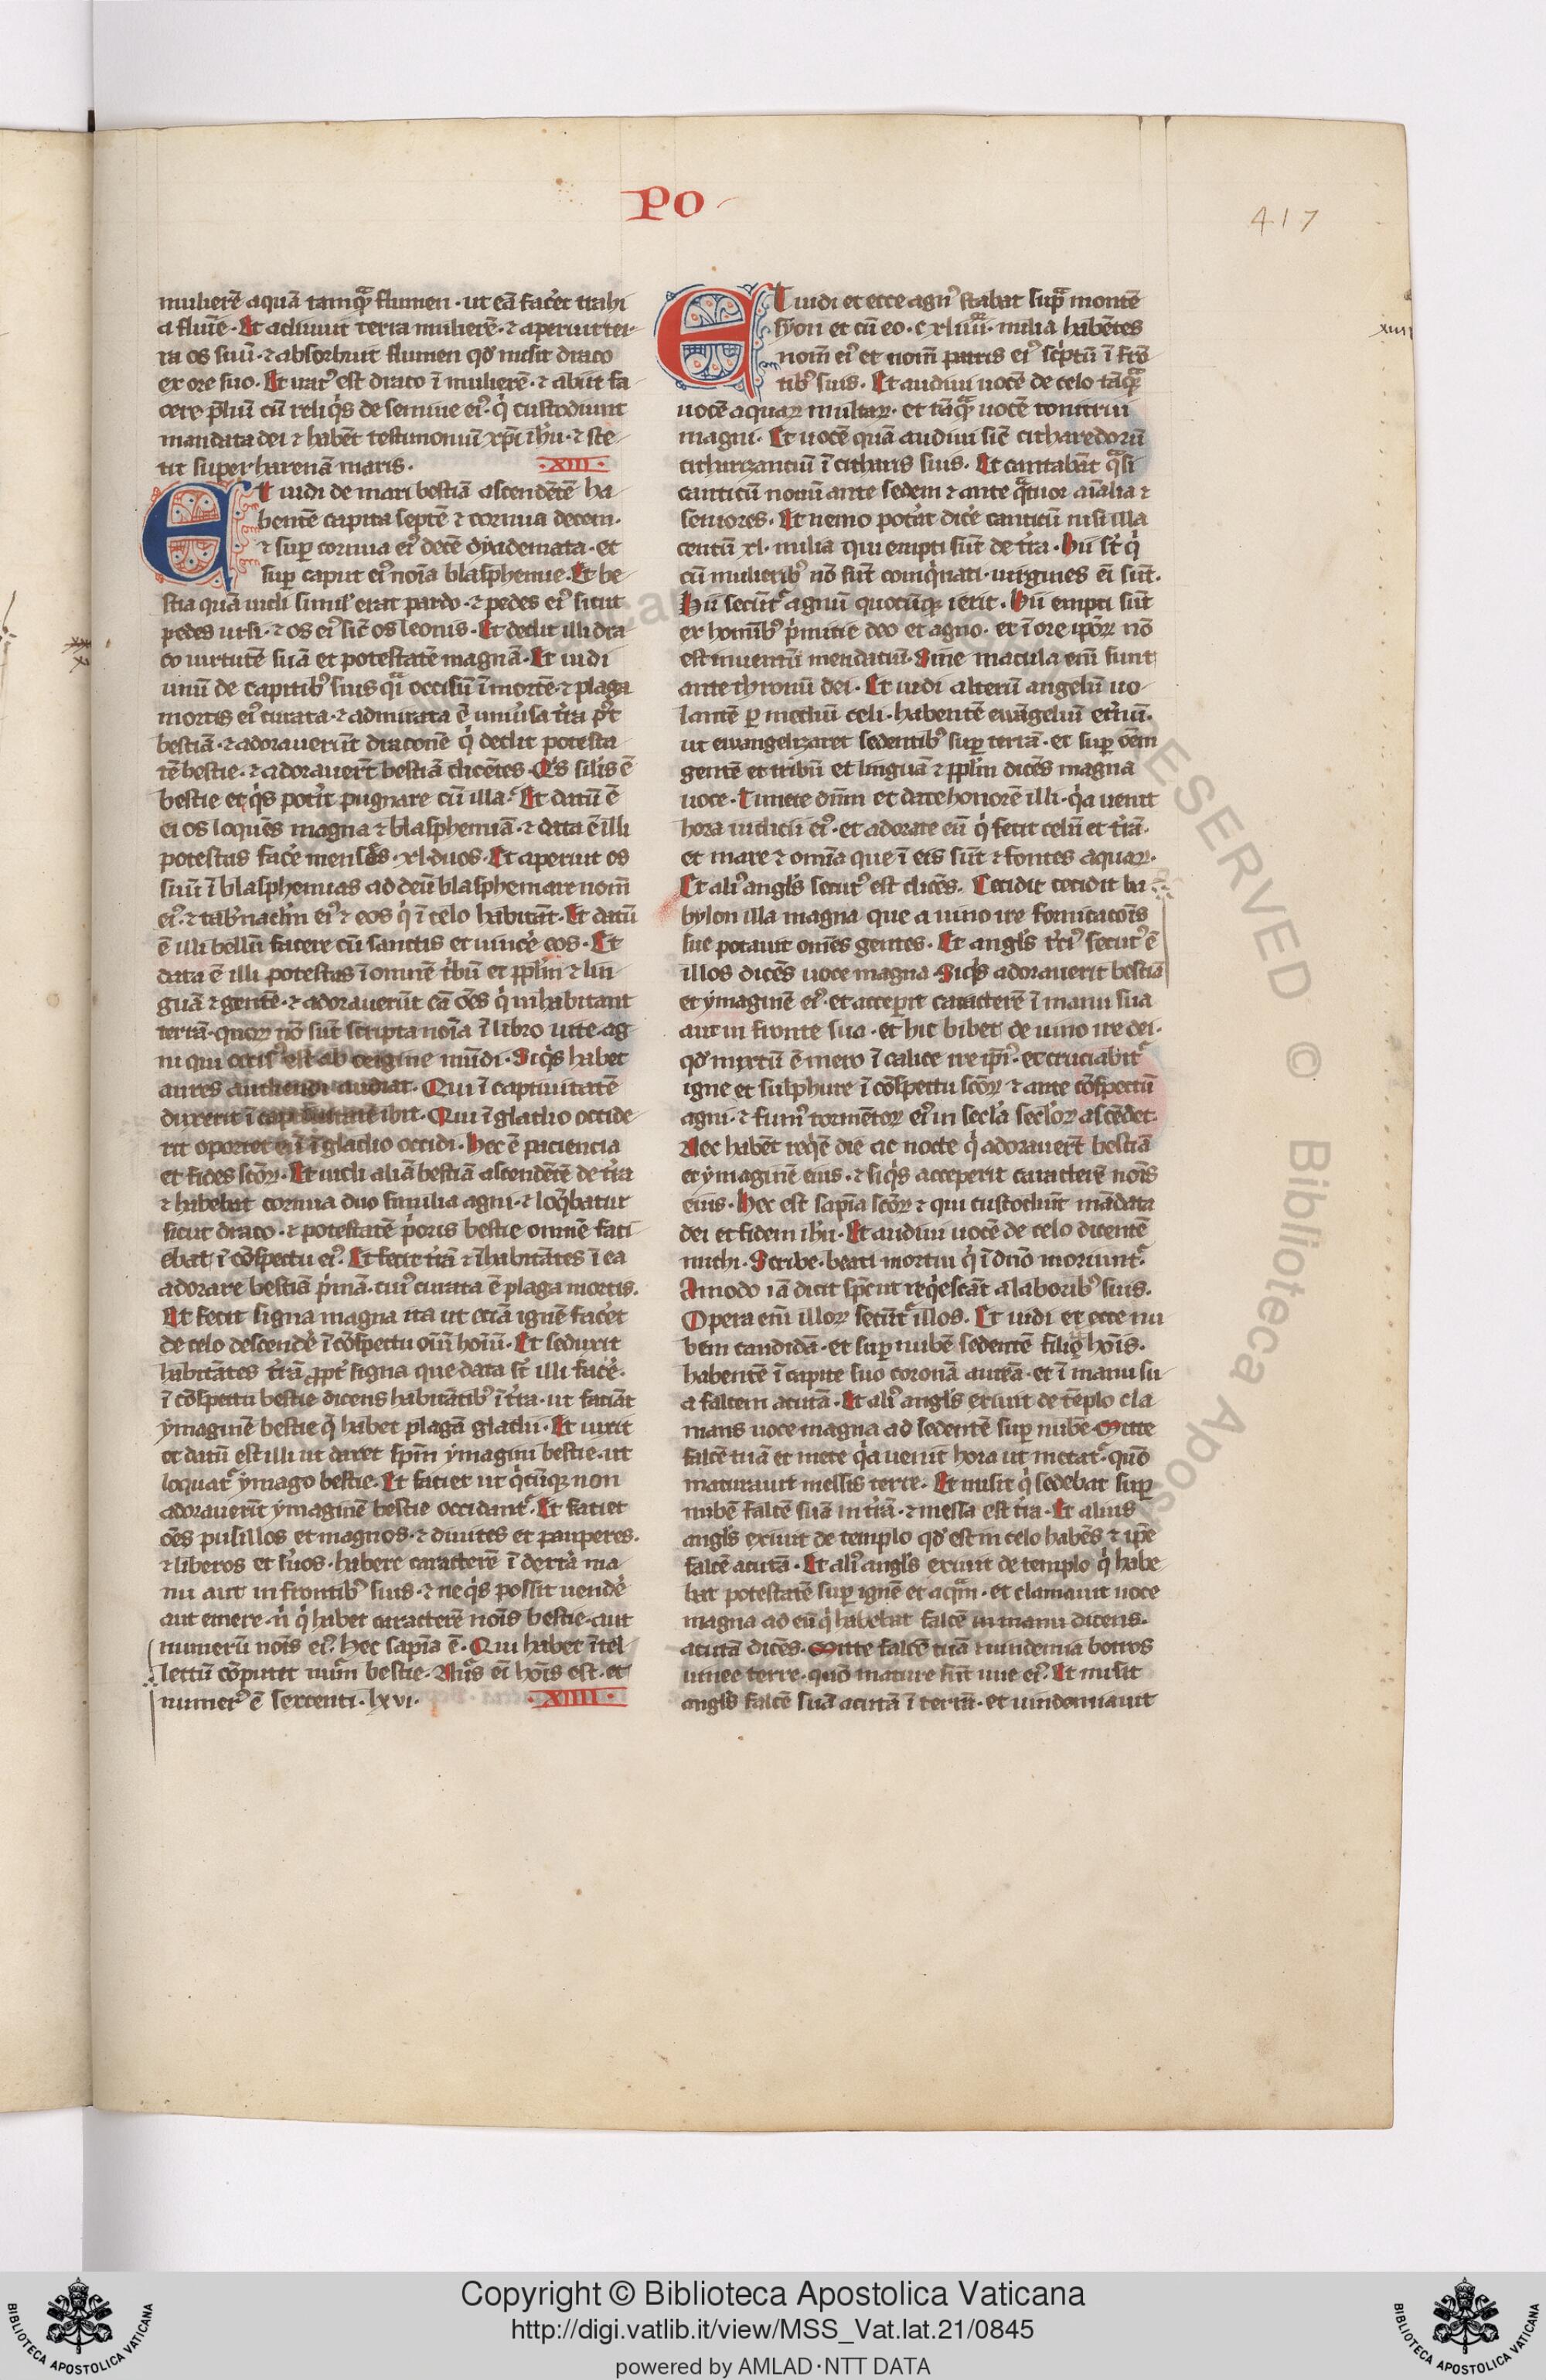 PO
417
mulierē aquā tamqͣ flumen · ut eā facͥet trahi
a flūie · Et adiuuit terra mulierē · ⁊ aperuit ter
ra os suū · ⁊ absorbuit flumen qd̓ misit draco
ex ore suo · Et irat᾿ est draco ī mulierē · ⁊ abiit fa
cere p̄liū cū reliqͥs de semine ei᾿ · qͥ custodiunt
mandata dei ⁊ habēt testimoniū xp̄i ih̓u · ⁊ ste
tit super harenā maris ·
·XIII·
ET uidi de mari bestiā ascendētē ha
bentē capita septē ⁊ cornua decem ·
⁊ sup̲ cornua ei᾿ decē dyademata · et
sup̲ caput ei᾿ noīa blasphemie · Et be
stia quā uidi simil᾿ erat pardo · ⁊ pedes ei᾿ sicut
pedes ursi · ⁊ os ei᾿ sic̄ os leonis · Et dedit illi dra
co uirtutē suā et potestatē magnā · Et uidi
unū de capitib᾿ suis qͣi occisū ī mortē · ⁊ plaga
mortis ei᾿ curata · ⁊ admirata ē uniu᾿sa t᾿ra p᾿t
bestiā · ⁊ adorauerūt draconē qͥ dedit potesta
tē bestie · ⁊ adorauer̄t bestiā dicētes · Qͥs sil̓is ē
bestie et qͥs pot᾿it pugnare cū illa · Et datū ē
ei os loquēs magna ⁊ blasphemiā · ⁊ data ē illi
potestas fac᾿e menses · xl · duos · Et aperuit os
suū ī blasphemias ad deū blasphemare nom̄
ei᾿ · ⁊ tab᾿naclm̄ ei᾿ ⁊ eos qͥ ī celo habitāt · Et datū
ē illi bellū facere cū sanctis et uinc᾿e eos · Et
data ē illi potestas ī omnē tͥbū et pplm̄ ⁊ lin
guā ⁊ gentē · ⁊ adorauerūt eā oēs qͥ inhabitant
terrā · quoꝝ nō sūt scripta noīa ī libro uite ag
ni qui occis᾿ est ab origine mūdi · Siqͥs habet
aures audiendi audiat · Qui ī captiuitatē
duxerit ī captiuitatē ibit · Qui ī gladio occide
rit oportet eū ī gladio occidi · Hec ē paciencia
et fides scōꝝ · Et uidi aliā bestiā ascendētē de t᾿ra
⁊ habebat cornua duo similia agni · ⁊ loq̄batur
sicut draco · ⁊ potestatē pͥoris bestie omnē faci
ebat ī cōspectu ei᾿ · Et fecit t᾿rā ⁊ īhabitātes ī ea
adorare bestiā pͥmā · cui᾿ curata ē plaga mortis ·
Et fecit signa magna ita ut eciā ignē fac᾿et
de celo descend᾿e ī cōspectu oīū hoīū · Et seduxit
habitātes t᾿rā ꝓpt᾿ signa que data st̄ illi fac᾿e ·
ī cōspectu bestie dicens habitātib᾿ ī t᾿ra · ut faciāt
ymaginē bestie q̄ habet plagā gladii · Et uixit
et datū est illi ut daret sp̄m ymagini bestie · ut
loquat᾿ ymago bestie · Et faciet ut qͥcūqꝫ non
adorauer̄t ymaginē bestie occidant᾿ · Et faciet
oēs pusillos et magnos · ⁊ diuites et pauperes ·
⁊ liberos et s᾿uos · habere caracterē ī dext᾿a ma
nu aut in frontib᾿ suis · ⁊ neqͥs possit uend᾿e
aut emere · nͥ qͥ habet caracterē noīs bestie · aut
numerū noīs ei᾿ · Hec sapīa ē · Qui habet ītel
lectū cōputet num̄ bestie · Nūs ei᾿ hoīs est · et
numer᾿ ē sexcenti · lxvi ·
·XIIII·
ET uidi et ecce agn᾿ stabat supͣ montē
syon et cū eo · cxliiiiᵒʳ · milia habētes
nom̄ ei᾿ et nom̄ patris ei᾿ scͥptū ī frō
tib᾿ suis · Et audiui uocē de celo tāqͣ
uocē aquaꝝ multaꝝ · et tāqͣ uocē tonitrui
magni · Et uocē quā audiui sic̄ citharedorū
citharizanciū ī citharis suis · Et cantabāt qͣsi
canticū nouū ante sedem ⁊ ante qͣtuor aīalia ⁊
seniores · Et nemo pot᾿at dic᾿e canticū nisi illa
centū xl · milia qui empti sūt de t᾿ra · Hii st̄ qͥ
cū mulierib᾿ nō sūt coinqͥnati · uirgines ei᾿ sūt ·
Hii secūt᾿ agnū quocūqꝫ ierit · Hii empti sūt
ex homīb᾿ pͥmicie deo et agno · et ī ore ip̄oꝝ nō
est inuentū mendaciū · Sine macula eni᾿ sunt
ante thronū dei · Et uidi alterū angelū uo
lantē p̲ mediū celi · habentē ewāgeliū et᾿nū ·
ut ewangelizaret sedentib᾿ sup̲ terrā · et sup̲ oēm
gentē et tribū et linguā ⁊ pplm̄ dicēs magna
uoce · Timete dnm̄ et date honorē illi · qͥa uenit
hora iudicii ei᾿ · et adorate eū qͥ fecit celū et t᾿rā ·
et mare ⁊ omīa que ī eis sūt ⁊ fontes aquaꝝ ·
Et ali᾿ angl̓s secut᾿ est dicēs · Cecidit cecidit ba
bylon illa magna que a uino ire fornicacoīs
sue potauit om̄es gentes · Et angl̓s t᾿ci᾿ secut᾿ ē
illos dicēs uoce magna · Siqͥs adorauerit bestiā
et ymaginē ei᾿ · et accep̲it caracterē ī manu sua
aut in fronte sua · et hic bibet de uino ire dei ·
qd̓ mixtū ē mero ī calice ire ip̄i᾿ · et cruciabit᾿
igne et sulphure ī cōspectu scōꝝ ⁊ ante cōspectū
agni · ⁊ fum᾿ tormētoꝝ ei᾿ in secl̓a secl̓oꝝ ascēdet ·
Nec habēt reqͥē die ac nocte qͥ adorauer̄t bestiā
et ymaginē eius · ⁊ siqͥs acceperit caracterē noīs
eius · Hec est sapīa scōꝝ ⁊ qui custodiūt mādata
dei et fidem ih̓u · Et audiui uocē de celo dicentē
michi · Scribe · beati mortui qͥ ī dnō moriunt᾿
Amodo iā dicit sp̄c ut reqͥescāt a laborib᾿ suis ·
Opera eni᾿ illoꝝ secūt᾿ illos · Et uidi et ecce nu
bem candidā · et sup̲ nubē sedentē filiō hoīs ·
habentē ī capite suo coronā aureā · et ī manu su
a falcem acutā · Et ali᾿ angl̓s exiuit de tēplo cla
mans uoce magna ad sedentē sup̲ nubē · Mitte
falcē tuā et mete qͥa uenit hora ut metat᾿ · qūo
maturauit messis terre · Et misit qͥ sedebat sup̲
nubē falcē suā in t᾿rā · ⁊ messa est t᾿ra · Et alius
angl̓s exiuit de templo qd̓ est in celo habēs ⁊ ip̄e
falcē acutā · Et ali᾿ angl̓s exiuit de templo qͥ habe
bat potestatē sup̲ ignē et aqͣm · et clamauit uoce
magna ad eū qͥ habebat falcē in manu dicens ·
acutā dicēs · Mitte falcē tuā ⁊ uindemia botros
uinee terre · qūo mature sūt uue ei᾿ · Et misit
angl̓s falcē suā acutā ī terrā · et uindemiauit
xiiii
RESERVED © Biblioteca Apos
Copyright © Biblioteca Apostolica Vaticana
http://digi.vatlib.it/view/MSS_Vat.lat.21/0845
powered by AMLAD·NTT DATA
BIBLIOTECA APOSTOLICA VATICANA
BIBLIOTECA APOSTOLICA VATICANA